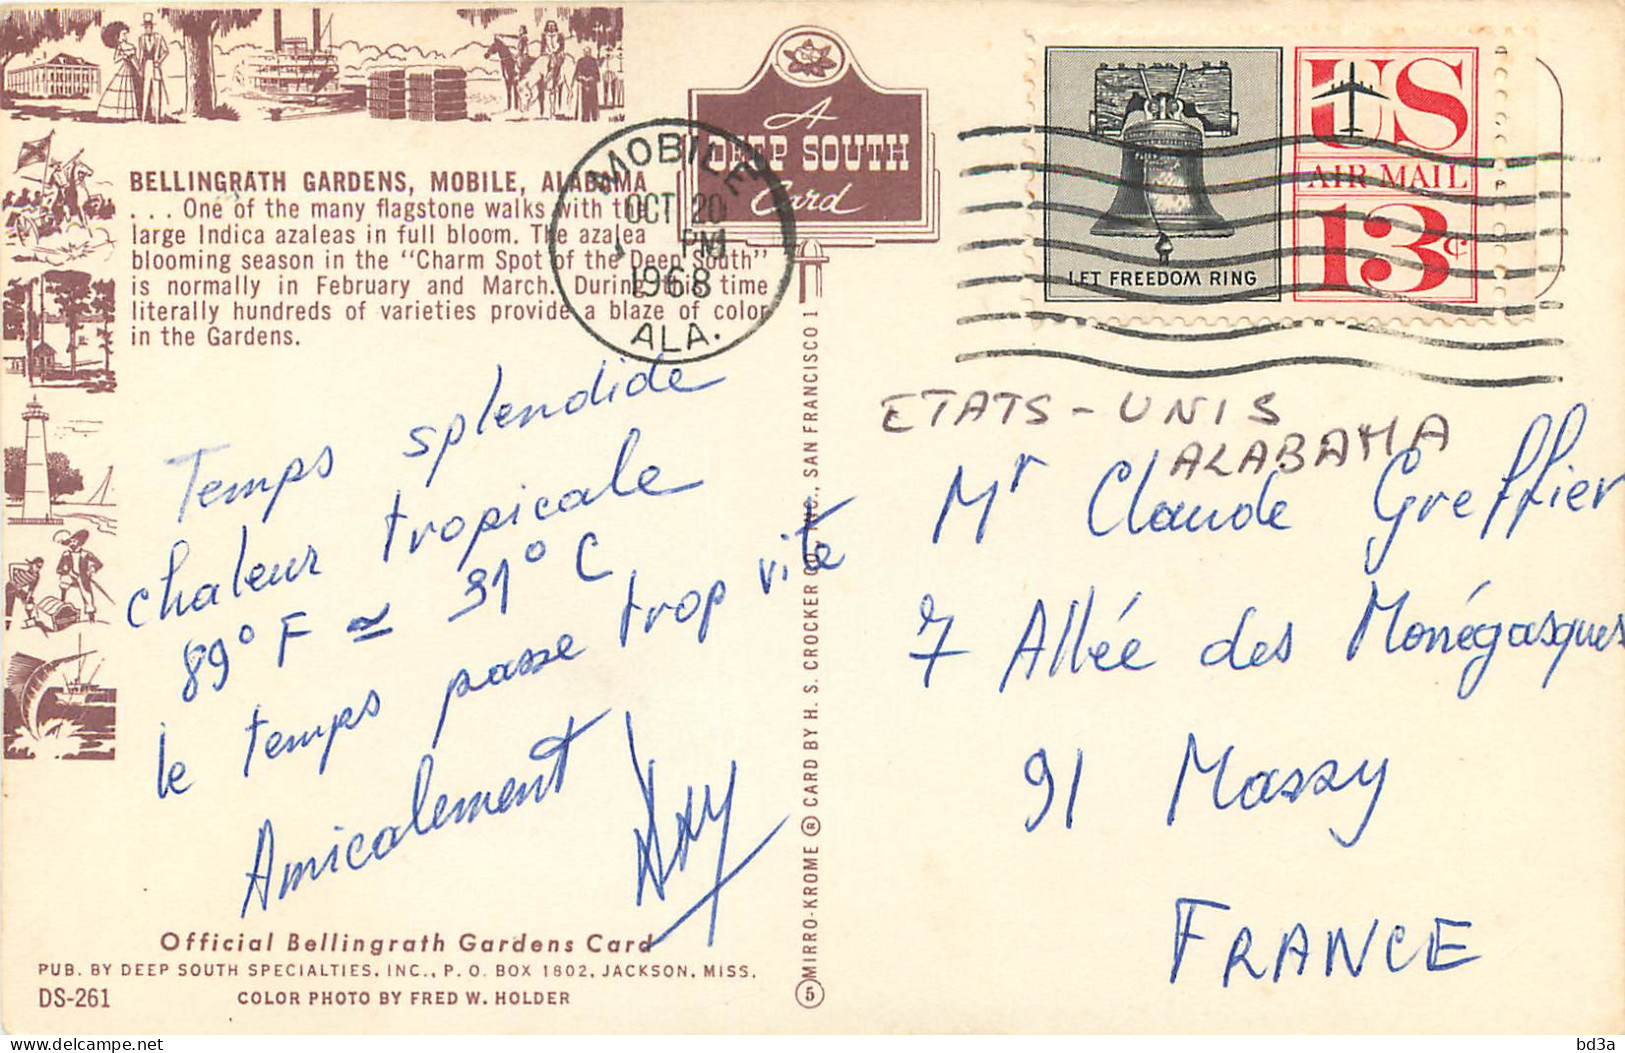 BELLINGRATH GARDENS, MOBILE, ALABAMA
. . . One of the many flagstone walks with the
large Indica azaleas in full bloom. The azalea
blooming season in the "Charm Spot of the Deep South"
is normally in February and March. During this time
literally hundreds of varieties provide a blaze of color
in the Gardens.
A
DEEP SOUTH
Card
MOBILE
OCT 20
PM
1968
ALA.
US
AIR MAIL
13¢
LET FREEDOM RING
Temps splendide
chaleur tropicale
89° F ≃ 31° C
le temps passe trop vite
Amicalement
ETATS-UNIS
ALABAMA
Mr Claude Greffier
7 Allée des Monégasques
91 Massy
FRANCE
MIRRO-KROME ® CARD BY H. S. CROCKER CO., INC., SAN FRANCISCO 1
5
Official Bellingrath Gardens Card
PUB. BY DEEP SOUTH SPECIALTIES, INC., P. O. BOX 1802, JACKSON, MISS.
DS-261 COLOR PHOTO BY FRED W. HOLDER
delcampe.net
bd3a